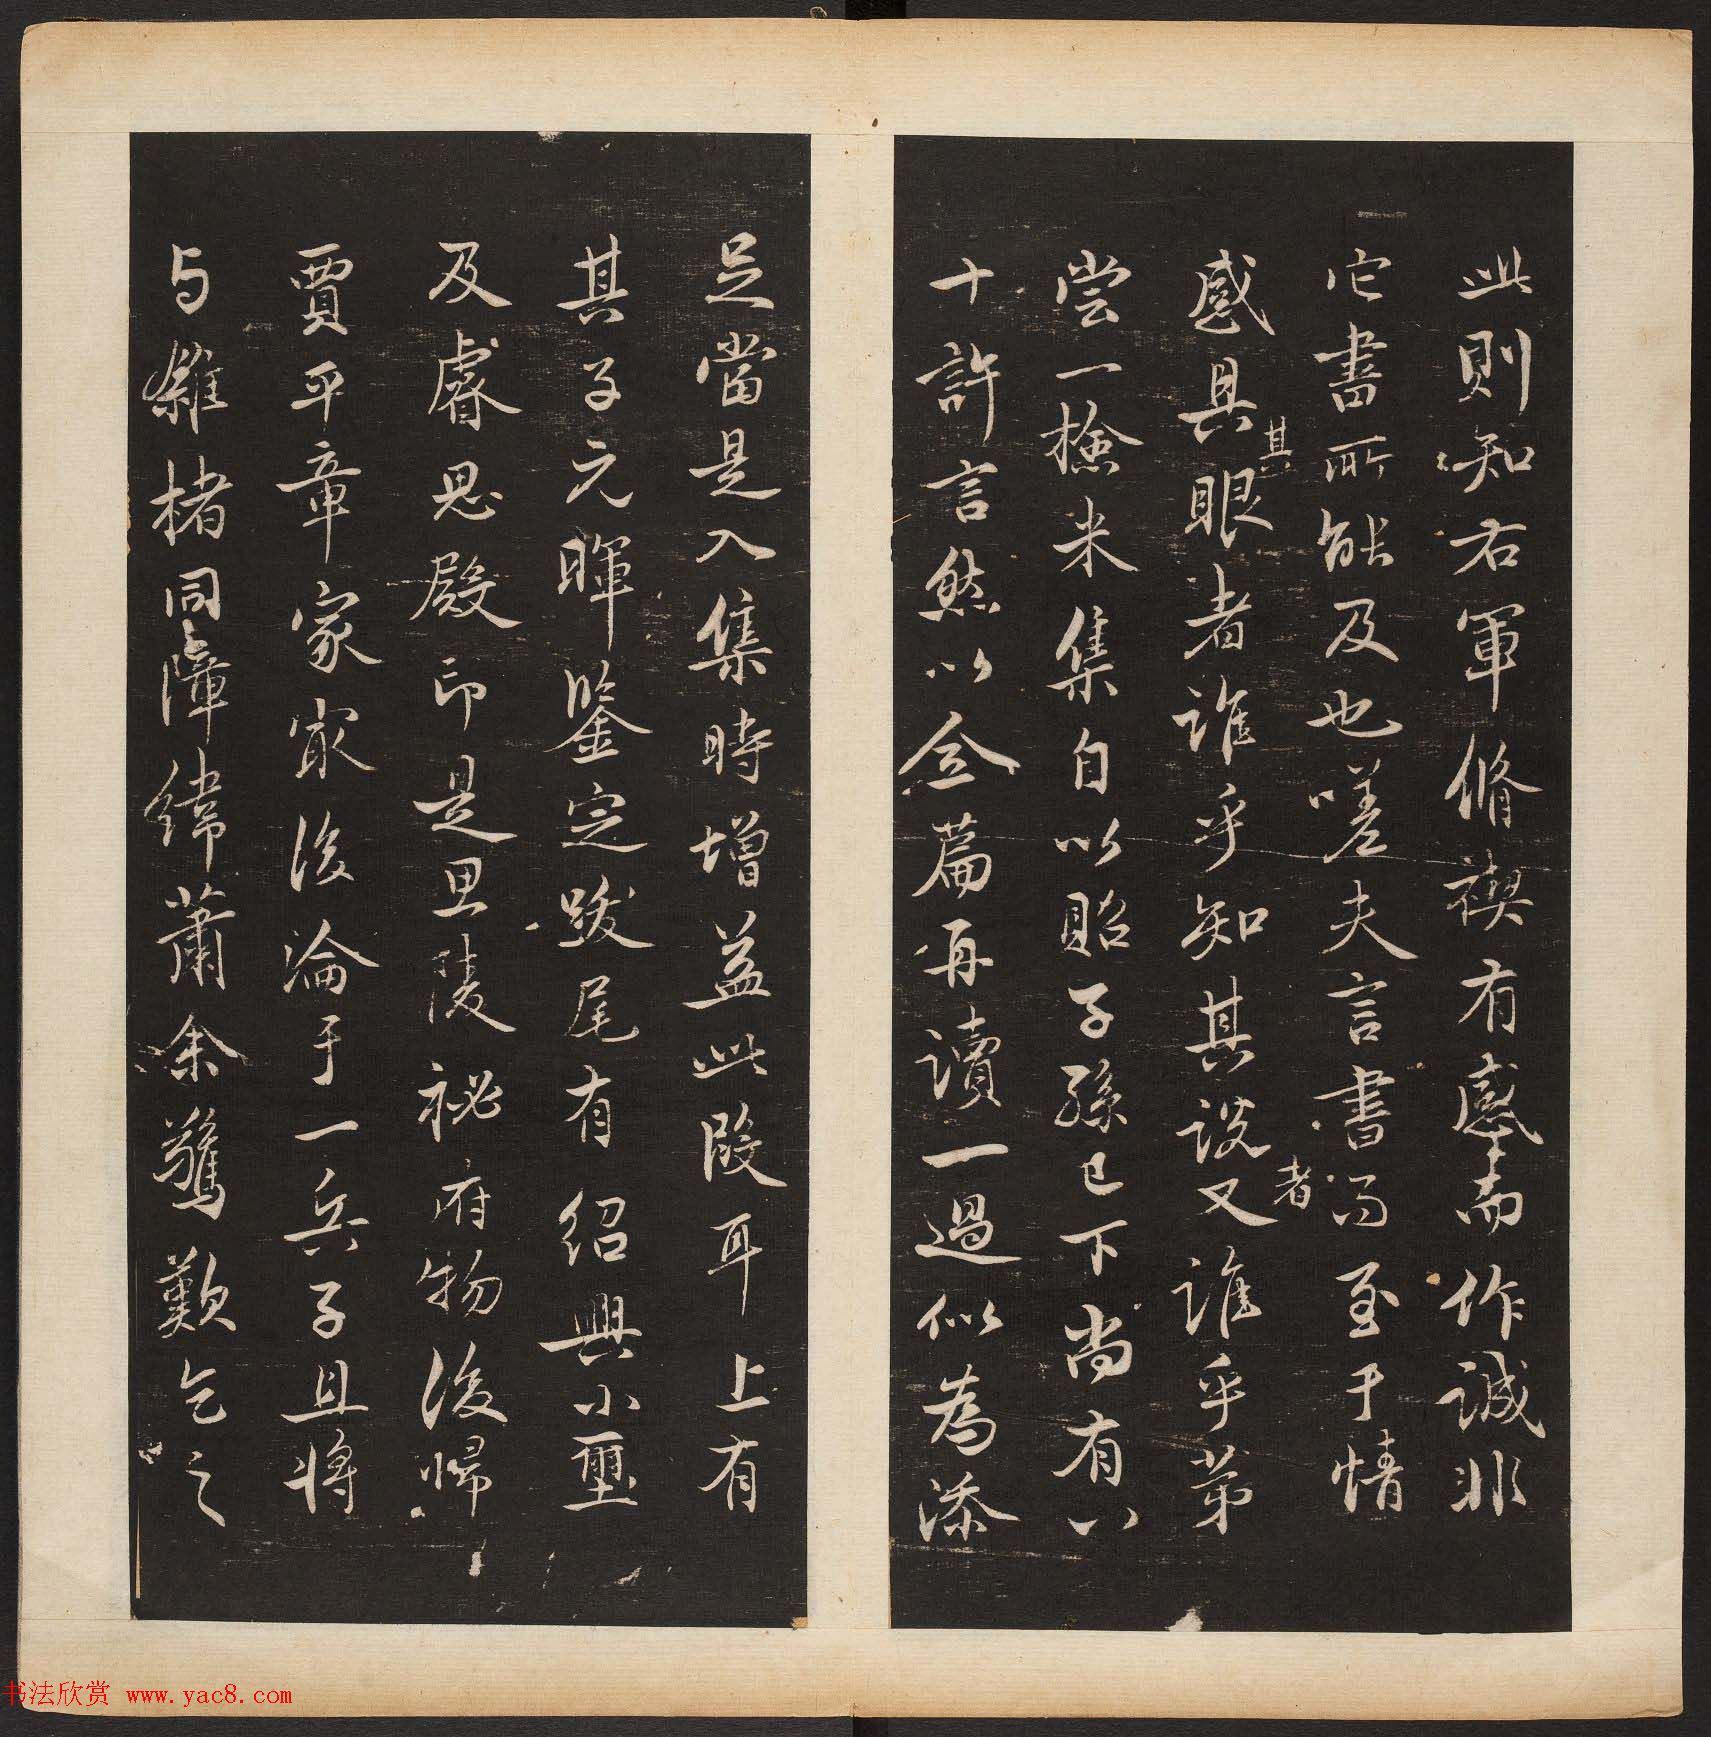 此則知右軍脩禊有感而作誠非
它書所能及也嗟夫言書而至于情
感具其眼者誰乎知其説又者誰乎第
嘗一撿米集自以貽子孫已下尚有八
十許言然以全篇再讀一過似為添
足當是入集時增益此段耳上有
其子元暉鑒定跋尾有紹興小璽
及睿思殿印是思陵祕府物後歸
賈平章家㝡後淪于一兵子且將
与雜楮同障緯蕭余驚歎乞之
书法欣赏 www.yac8.com